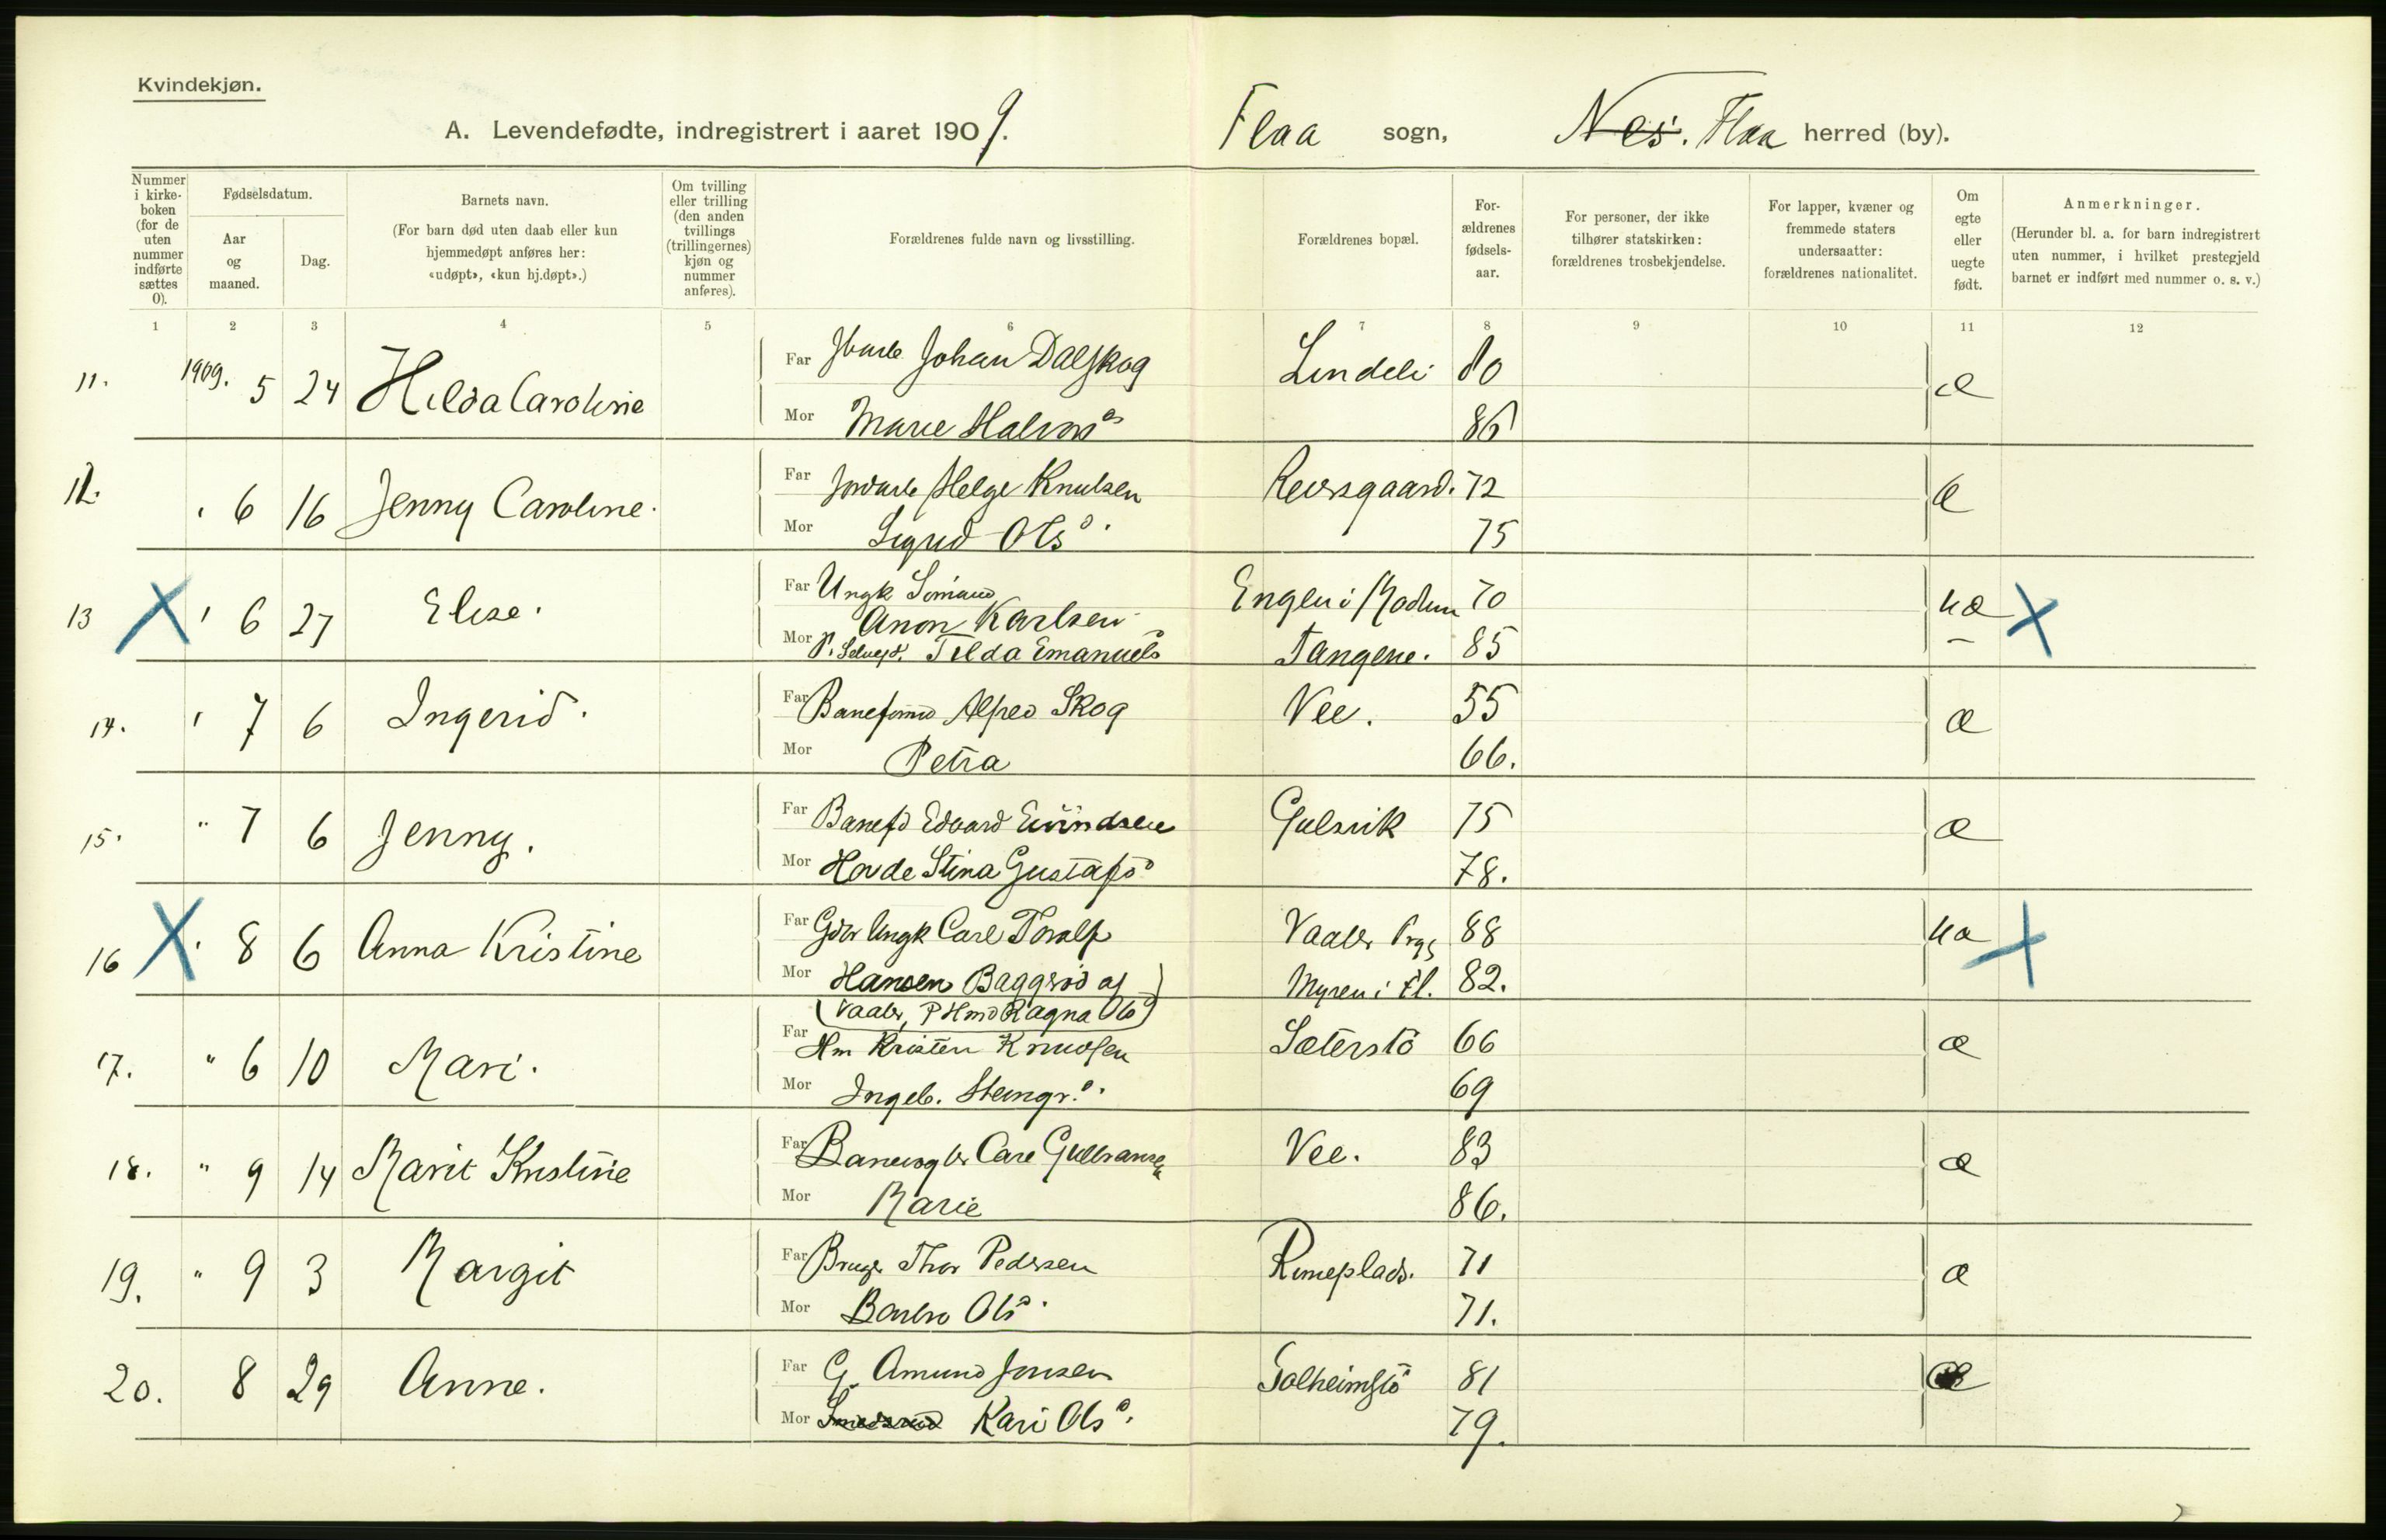 Kvindekjøn.
A. Levendefødte, indregistrert i aaret 1909. Flaa sogn, Nes. Flaa herred (by).
Nummer i kirkeboken (for de uten nummer indførte sættes 0).
Fødselsdatum.
Aar og maaned.
Dag.
Barnets navn.
(For barn død uten daab eller kun hjemmedøpt anføres her: «udøpt», «kun hj.døpt».)
Om tvilling eller trilling (den anden tvillings (trillingernes) kjøn og nummer anføres).
Forældrenes fulde navn og livsstilling.
Forældrenes bopæl.
Forældrenes fødselsaar.
For personer, der ikke tilhører statskirken: forældrenes trosbekjendelse.
For lapper, kvæner og fremmede staters undersaatter: forældrenes nationalitet.
Om egte eller uegte født.
Anmerkninger.
(Herunder bl. a. for barn indregistrert uten nummer, i hvilket prestegjeld barnet er indført med nummer o. s. v.)
1 2 3 4 5 6 7 8 9 10 11 12
11. 1909. 5 24 Hilda Caroline Far Johan Dalskog Lindeli 80 æ
Mor Marie Halvors 86
12. " 6 16 Jenny Caroline. Far Helge Knutsen 72 æ
Mor Sigrid Ols. 75
13 X " 6 27 Elise. Far Ungk Anon Karlsen Engen i Modum 70 uæ X
Mor P. Selvejd. Tilda Emanuels Tangene. 85
14. " 7 6 Ingerid. Far Alfred Skog Vee. 55 æ
Mor Petra 66.
15. " 7 6 Jenny. Far Edvard Eivindsen Gulsvik 75 æ
Mor Hovde Stina Gustafs 78.
16 X " 8 6 Anna Kristine Far Ungk Carl Toralf Vaaler 88 uæ X
Mor Hansen Baggerød af Myren i Fl. 82.
(Vaaler, P Hmd Ragna Ols)
17. " 6 10 Mari. Far Hm Kristen Knudsen Sæterstø 66 æ
Mor Ingeb. Steingr. 69
18. " 9 14 Marit Kristine Far Gulbransen Vee. 83 æ
Mor Marie 86.
19. " 9 3 Margit Far Bruger Thor Pedersen Rimeplads. 71 æ
Mor Barbro Ols. 71.
20. 8 29 Anne. Far G. Amund Jonsen Golheimstø 81 æ
Mor Kari Ols. 79.